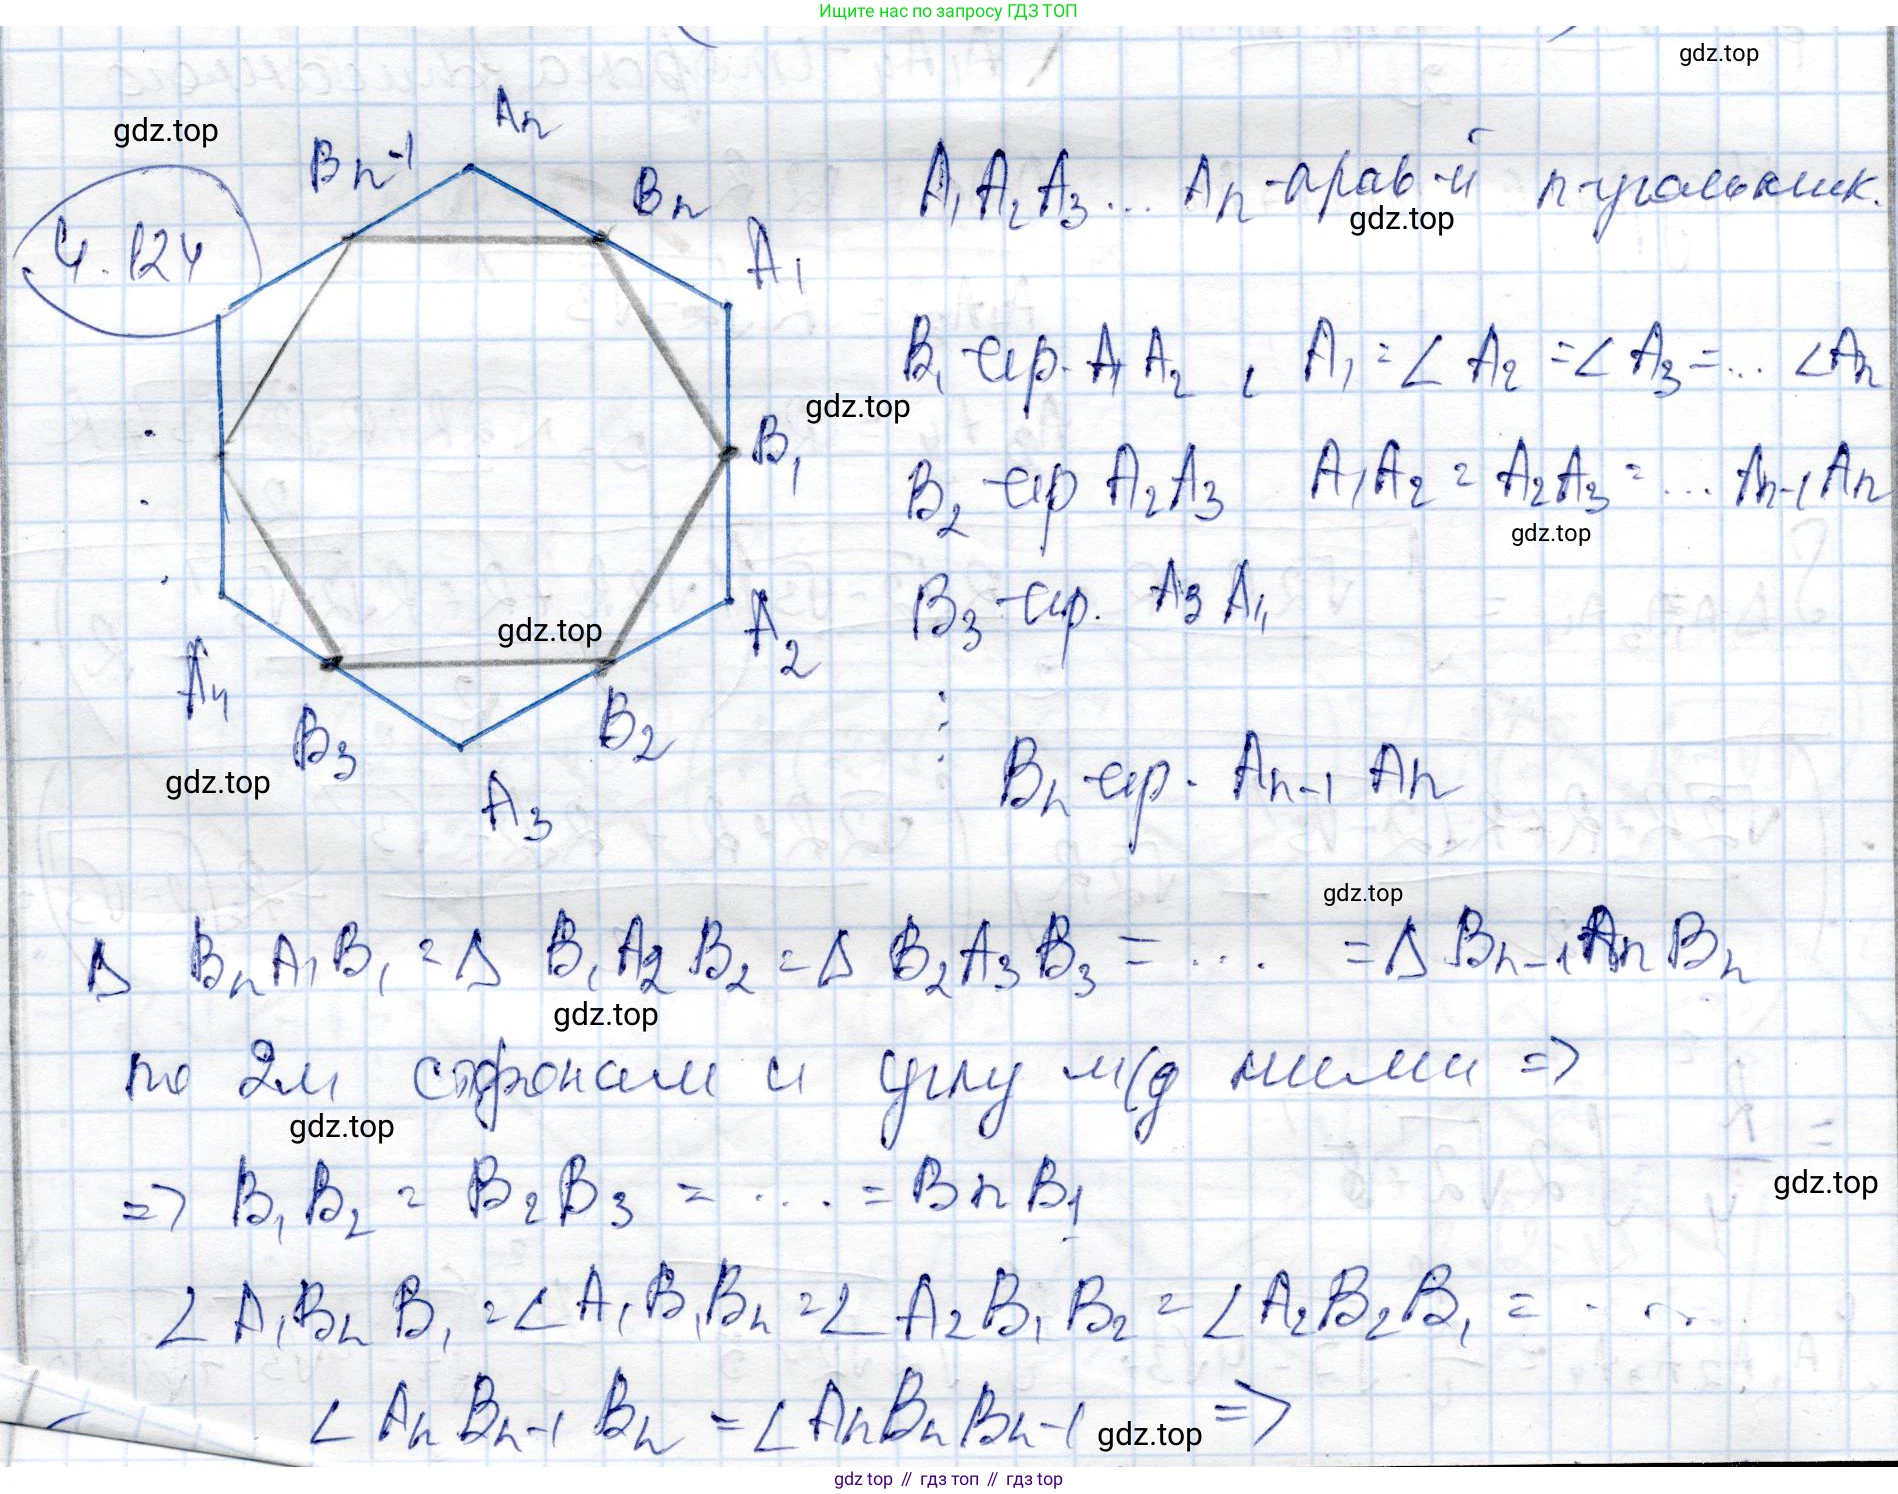 Ищите нас по запросу ГДЗ ТОП
gdz.top
gdz.top
4.124
An
Bn-1
Bn
A1
B1
A2
B2
A3
B3
A4
A1 A2 A3 ... An - прав-й n-угольник.
gdz.top
B1 - сер. A1 A2, A1 = ∠ A2 = ∠ A3 = ... ∠An
gdz.top
B2 - сер A2 A3 A1A2 = A2A3 = ... An-1 An
gdz.top
B3 - сер. A3 A4
gdz.top
⋮
Bn - сер. An-1 An
gdz.top
gdz.top
Δ BnA1B1 = Δ B1A2B2 = Δ B2A3B3 = ... = Δ Bn-1AnBn
gdz.top
по 2м сторонам и углу м/д ними =>
gdz.top
=> B1B2 = B2B3 = ... = BnB1
gdz.top
∠ A1BnB1 = ∠ A1B1Bn = ∠ A2B1B2 = ∠ A2B2B1 = ...
∠ AnBn-1Bn = ∠ AnBnBn-1 =>
gdz.top
gdz top // гдз топ // гдз top